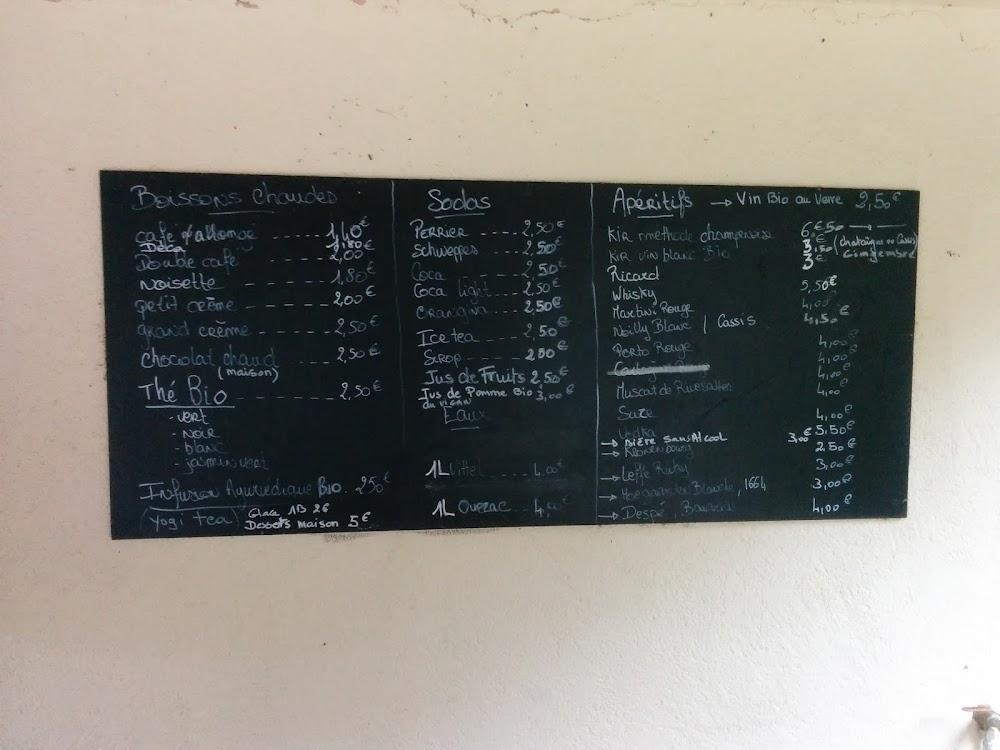 Boissons Chaudes
café allongé ------ 1,40€
Déca 1,80€
Double café 2,00
Noisette ------ 1,80€
petit crème ------ 2,00€
grand crème ------ 2,50€
Chocolat chaud ------ 2,50€
(maison)
Thé Bio ------ 2,50€
- vert
- noir
- blanc
- jasmin vert
Infusion Ayurvédique Bio. 250€
(yogi tea)
Glace 1B 2€
Desserts maison 5€
Sodas
PERRIER ---- 2,50€
Schweppes 2,50€
Coca ---- 2,50€
Coca light ---- 2,50€
Orangina ---- 2,50€
Ice tea ---- 2,50€
Sirop ---- 2,00€
Jus de Fruits 2,50€
Jus de Pomme Bio 3,00€
du VIGAN
Eaux
1L Vittel ---- 4,00€
1L Quezac ---- 4,00€
Apéritifs → Vin Bio au Verre 2,50€
Kir méthode champenoise 6€50
Kir vin blanc Bio 3,50 (chataigne ou Cassis
Gingembre
Ricard 3€
Whisky 5,50€
Martini Rouge 4,00€
Noilly Blanc / Cassis 4,50€
Porto Rouge 4,00€
4,00€
Muscat de Rivesaltes 4,00€
Suze 4,00€
Vodka 5,50€
→ Bière sans Alcool 3,00€
→ Kronenbourg 2,50€
→ Leffe Ruby 3,00€
→ Hoegaarden Blanche, 1664 3,00€
→ Despe 4,00€